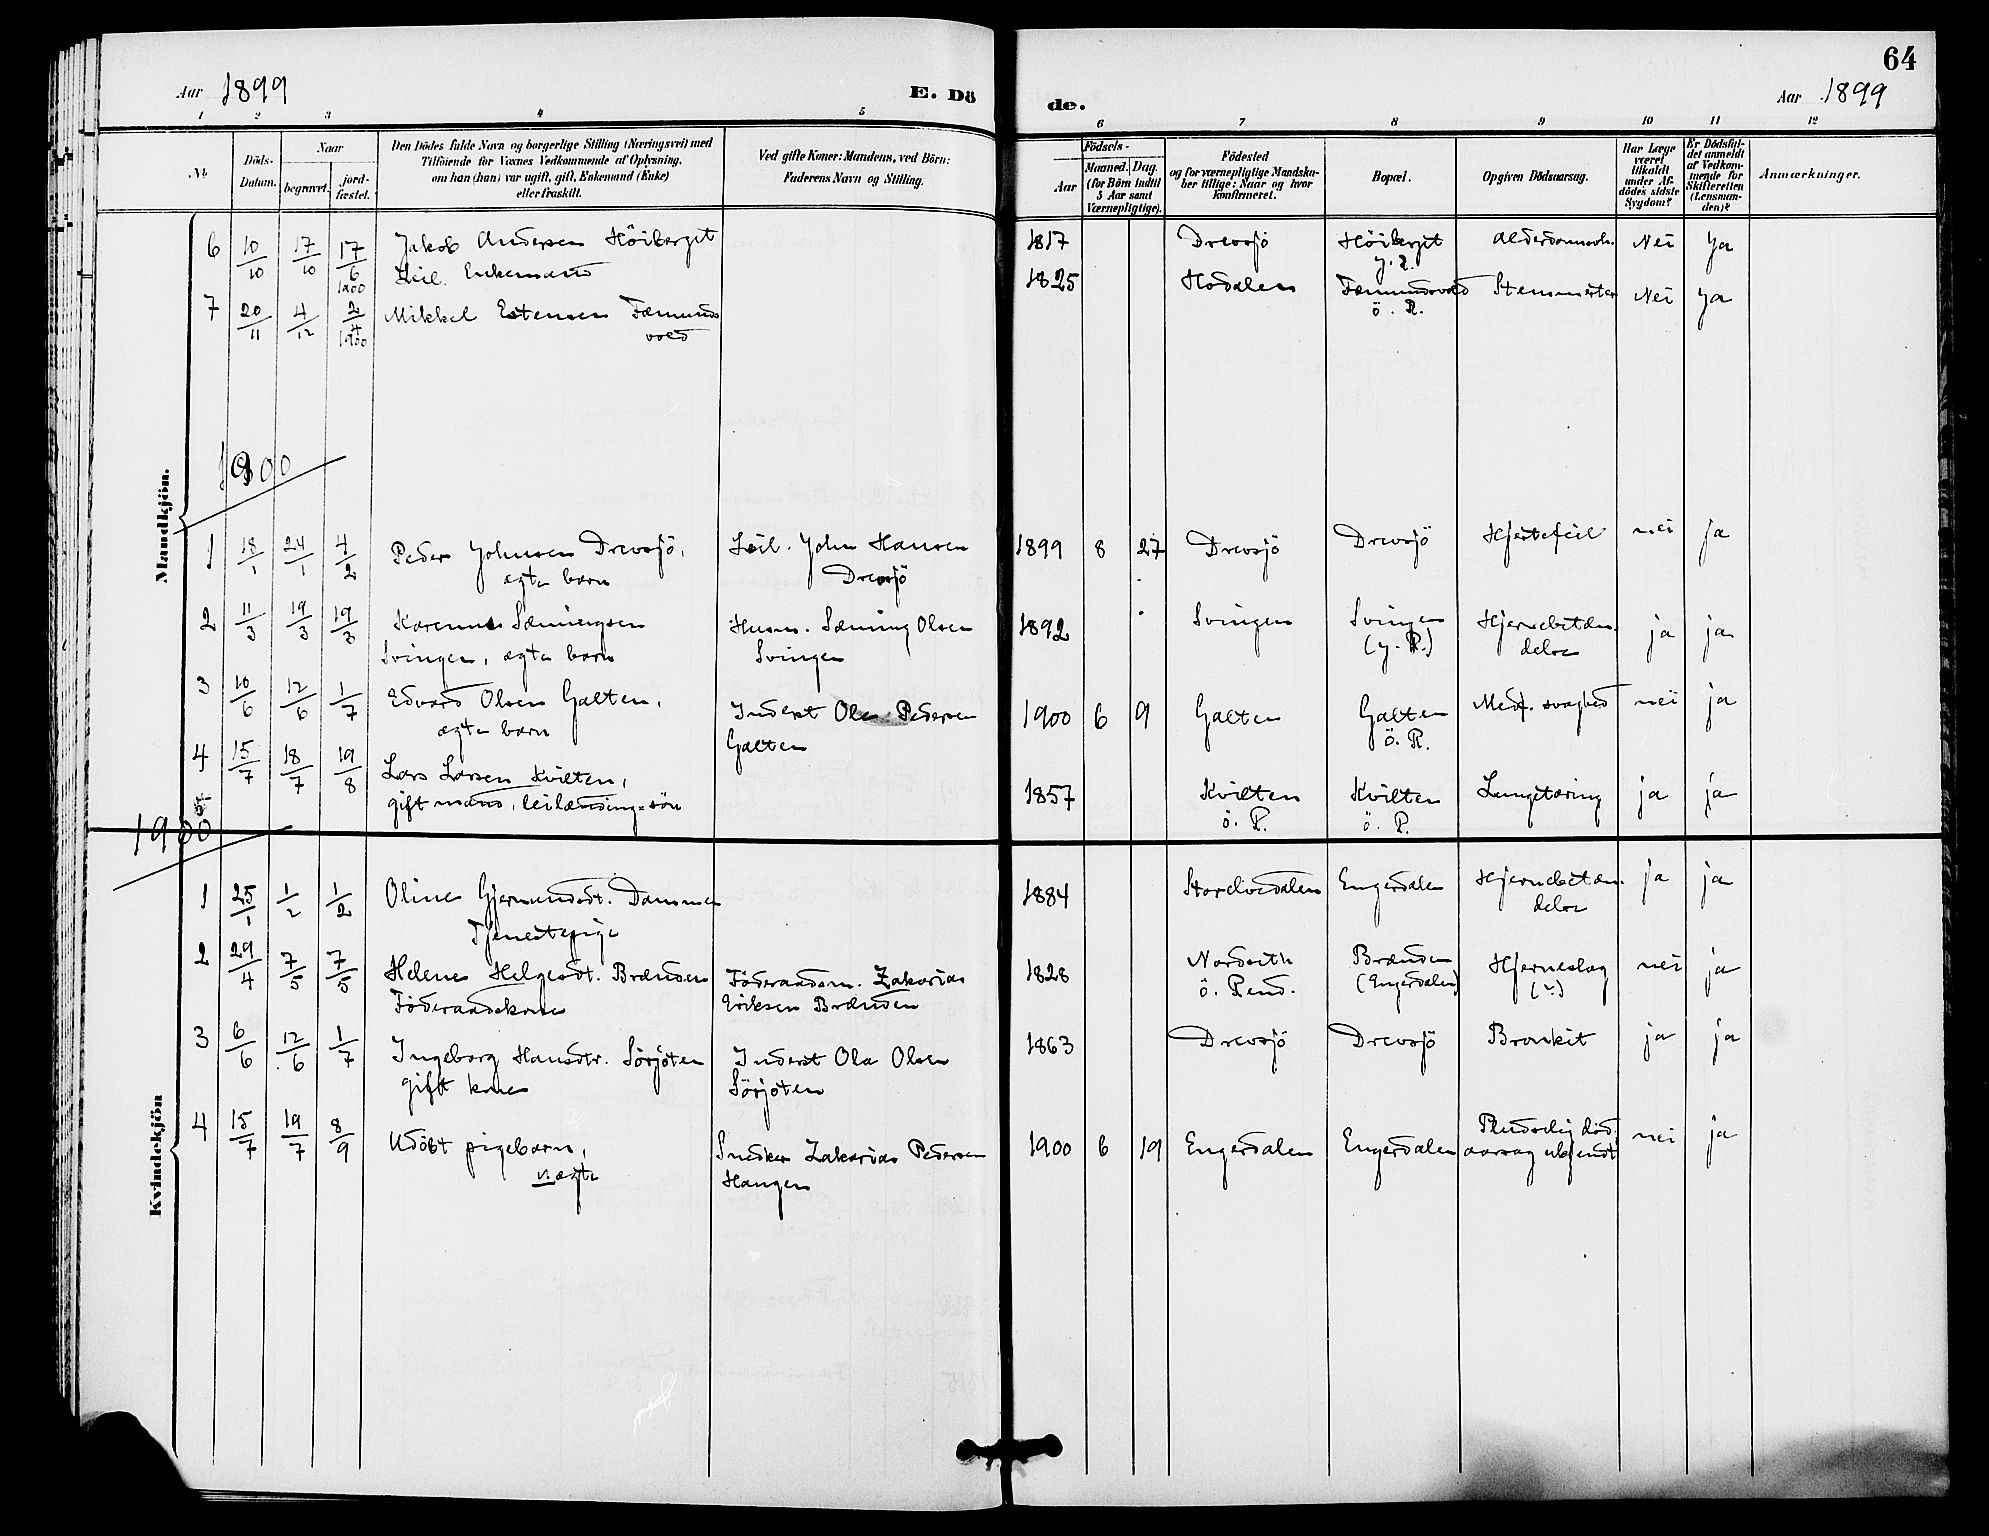 Aar 1899
E. Dö
de.
64
Aar 1899
1 2 3 4 5
6 7 8 9 10 11 12
№
Döds-
Datum.
Naar
begravet.
jord-
fæstet.
Den Dödes fulde Navn og borgerlige Stilling (Næringsvei) med
Tilföiende for Voxnes Vedkommende af Oplysning,
om han (hun) var ugift, gift, Enkemand (Enke)
eller fraskilt.
Ved gifte Koner: Mandens, ved Börn:
Faderens Navn og Stilling.
Födsels-
Aar
Maaned. Dag.
(for Börn indtil
5 Aar samt
Værnepligtige).
Födested
og for værnepligtige Mandska-
ber tillige: Naar og hvor
konfirmeret.
Bopæl.
Opgiven Dödsaarsag.
Har Læge
været
tilkaldt
under Af-
dödes sidste
Sygdom?
Er Dödsfal-
det anmeldt
af Vedkom-
mende for
Skifteretten
(Lensman-
den)?
Anmærkninger.
Mandkjön.
6 10/10 17/10 17/6 1900 Jakob Andersen Höiberget 1817 Drevsjö Höiberget Nei Ja
Leil. Enkemand y. R.
7 20/11 4/12 2/4 1900 Mikkel Estensen Fæmunds 1825 Hodalen Fæmundsvold Stensmerter Nei Ja
vold ö. R.
1900
1 18/1 24/1 4/2 Peder Johnsen Drevsjö, Leil. John Hansen 1899 8 27 Drevsjö Drevsjö Hjertefeil nei ja
ægte barn Drevsjö
2 11/3 19/3 19/3 Karenus Sæmingsen Husm. Sæming Olsen 1892 Svingen Svingen Hjernebetæn- ja ja
Svingen, ægte barn Svingen (y. R.) delse
3 10/6 12/6 1/7 Edvard Olsen Galten, Inderst Ole Pedersen 1900 6 9 Galten Galten Medf. svaghed nei ja
ægte barn Galten ö. R.
4 15/7 18/7 19/8 Lars Larsen Kvilten, 1857 Kvilten Kvilten Lungetæring ja ja
gift mand, leilænding-sön ö. R. ö. R.
5
1900
Kvindekjön
1 25/1 1/2 1/2 Oline Gjermundsdt. Dammen 1884 Storelvedalen Engerdalen Hjernebetæn- ja ja
Tjenestepige delse
2 29/4 7/5 7/5 Helene Helgesdt. Brænden Föderaadsm. Zakarias 1828 Nordseth Brænden Hjerneslag nei ja
Föderaadskone Eriksen Brænden ö. Rend. (Engerdalen) (?)
3 6/6 12/6 1/7 Ingeborg Hansdtr. Sörjoten Inderst Ola Olsen 1863 Drevsjö Drevsjö Bronkit ja ja
gift kone Sörjoten
4 15/7 19/7 8/9 Udöbt pigebarn, Snedker Zakarias Pedersen 1900 6 19 Engerdalen Engerdalen Pludselig död. nei ja
uægte Haugen aarsag ubkjendt